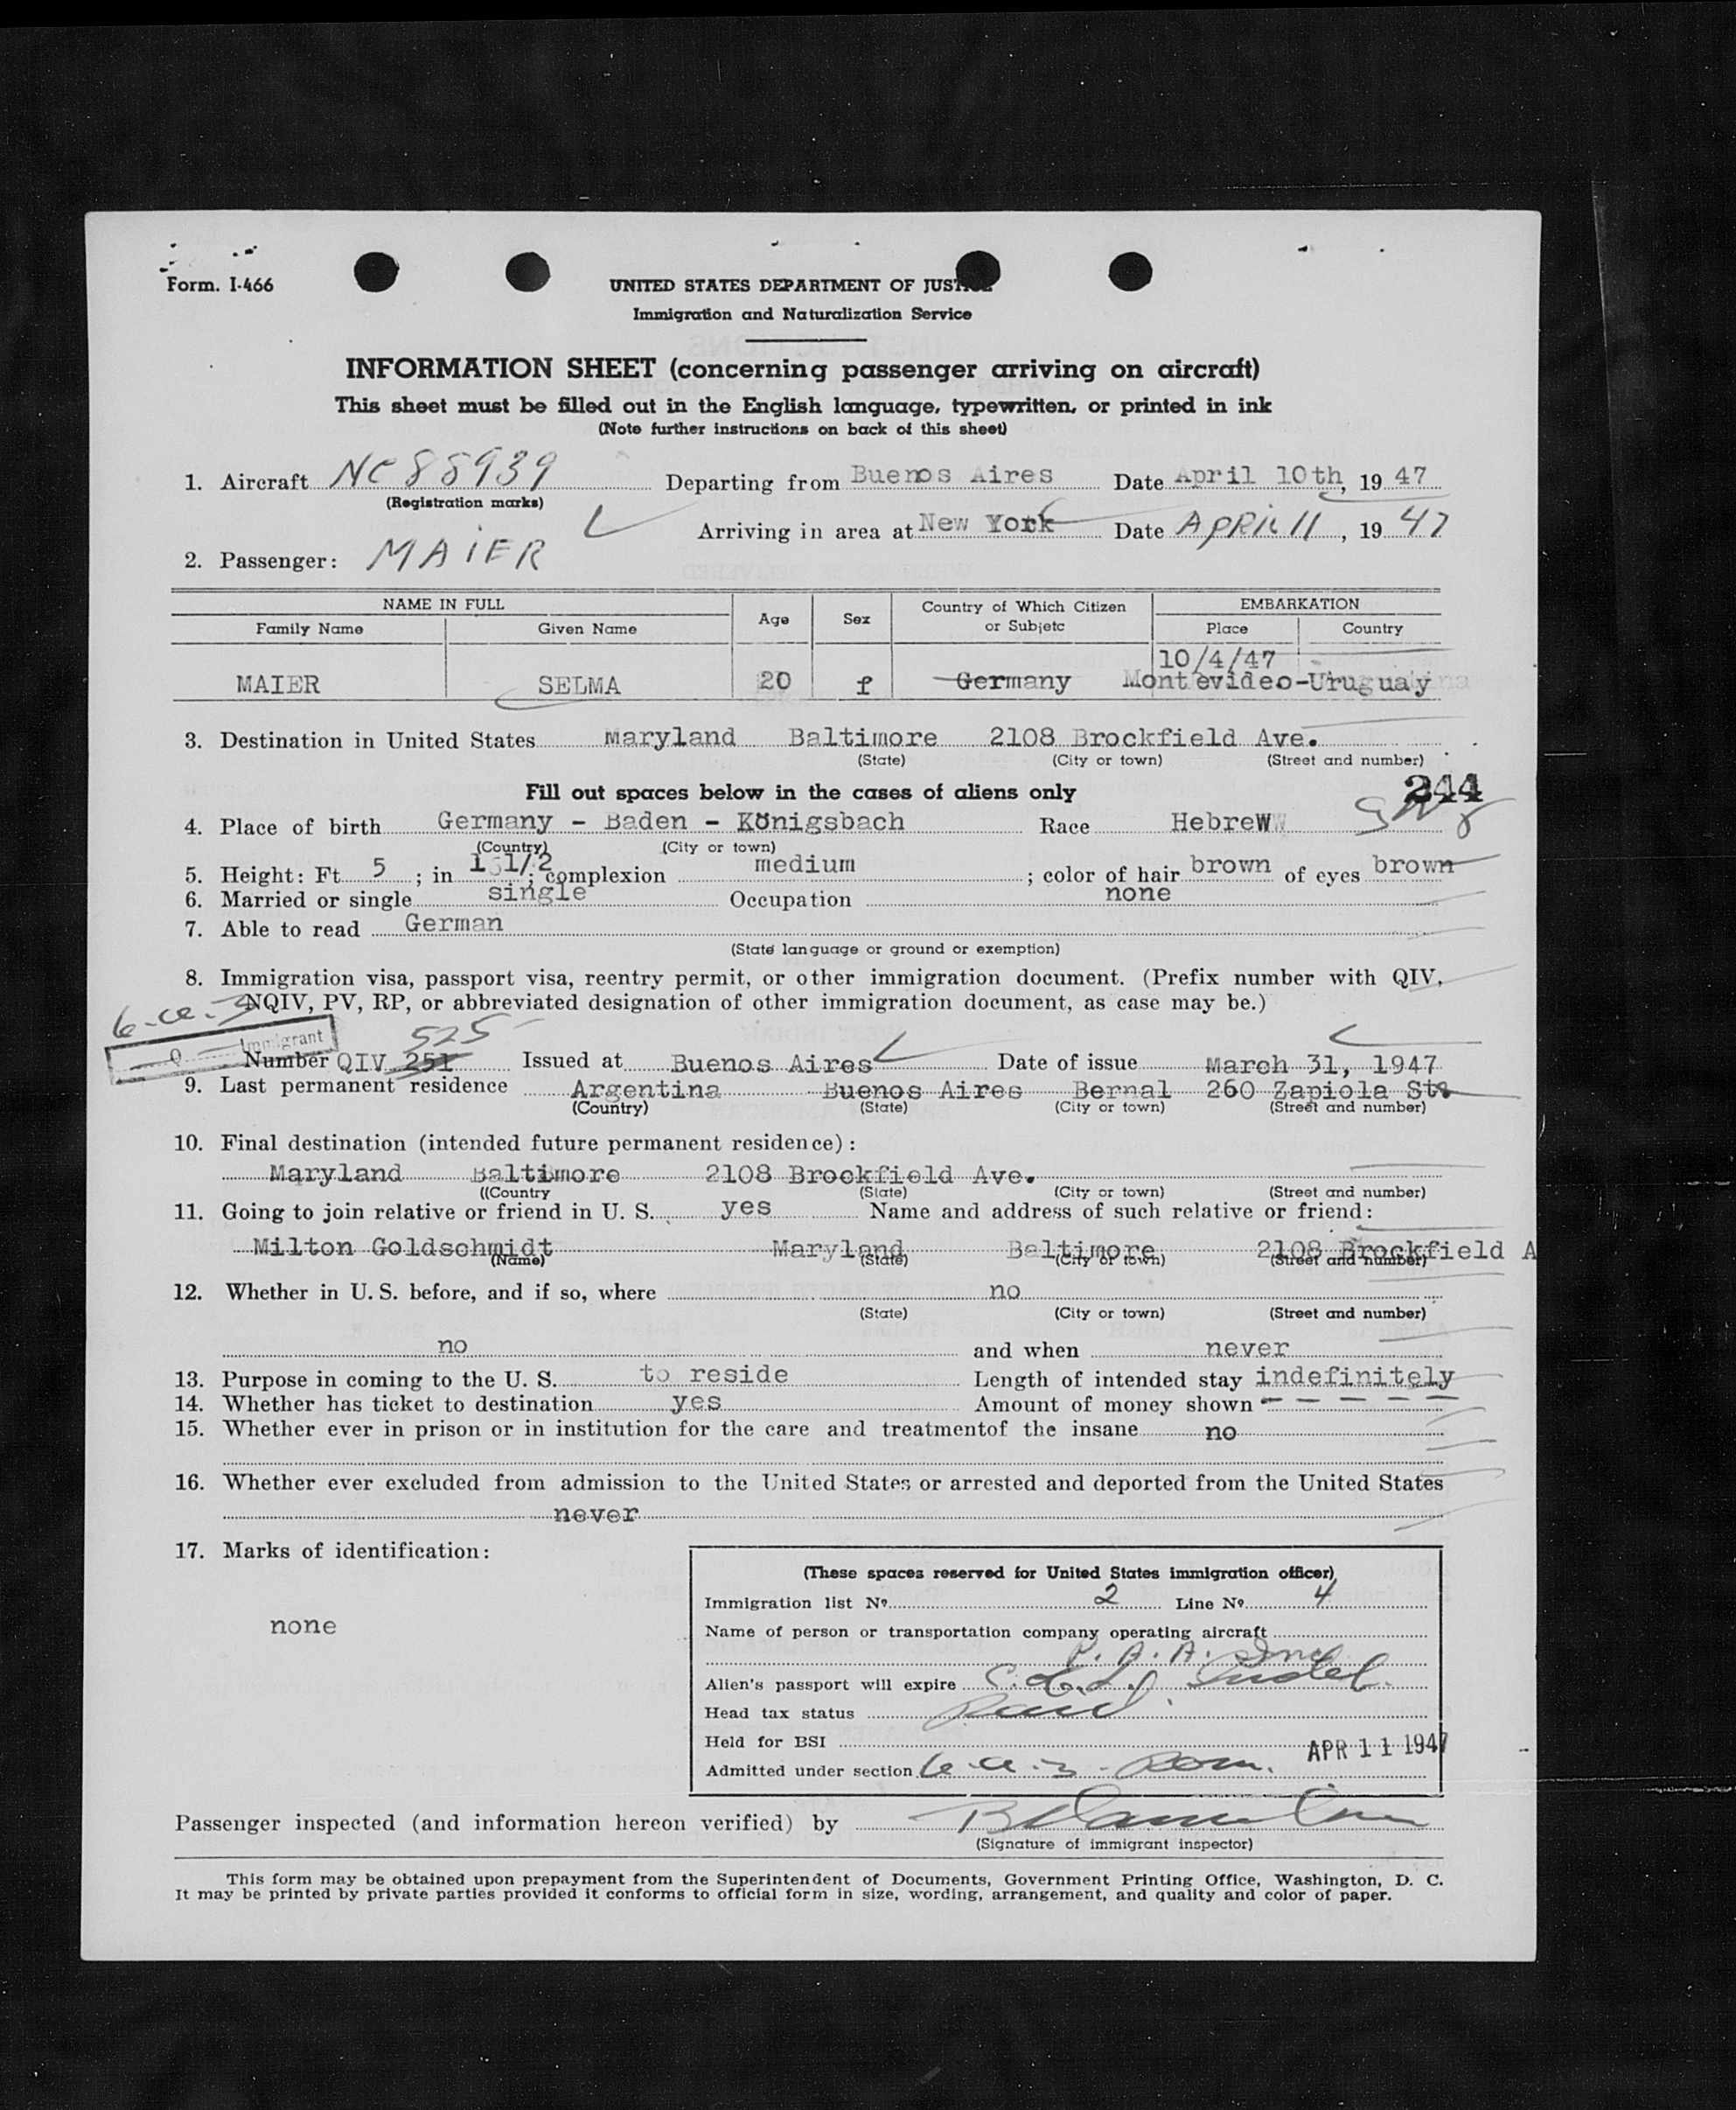 Form. I-466
UNITED STATES DEPARTMENT OF JUSTICE
Immigration and Naturalization Service
INFORMATION SHEET (concerning passenger arriving on aircraft)
This sheet must be filled out in the English language, typewritten, or printed in ink
(Note further instructions on back of this sheet)
1. Aircraft NC 88939 Departing from Buenos Aires Date April 10th, 19 47
(Registration marks)
Arriving in area at New York Date APRIL 11, 19 47
2. Passenger: MAIER
NAME IN FULL Age Sex Country of Which Citizen or Subjetc EMBARKATION
Family Name Given Name Place Country
10/4/47
MAIER SELMA 20 f Germany Montevideo-Uruguay
3. Destination in United States Maryland Baltimore 2108 Brockfield Ave.
(State) (City or town) (Street and number)
Fill out spaces below in the cases of aliens only 244
4. Place of birth Germany - Baden - Königsbach Race Hebrew
(Country) (City or town)
5. Height: Ft. 5 ; in 1 1/2 ; complexion medium ; color of hair brown of eyes brown
6. Married or single single Occupation none
7. Able to read German
(State language or ground or exemption)
8. Immigration visa, passport visa, reentry permit, or other immigration document. (Prefix number with QIV,
NQIV, PV, RP, or abbreviated designation of other immigration document, as case may be.)
6-a-3
Q Immigrant
525
Number QIV 251 Issued at Buenos Aires Date of issue March 31, 1947
9. Last permanent residence Argentina Buenos Aires Bernal 260 Zapiola St.
(Country) (State) (City or town) (Street and number)
10. Final destination (intended future permanent residence):
Maryland Baltimore 2108 Brockfield Ave.
((Country (State) (City or town) (Street and number)
11. Going to join relative or friend in U. S. yes Name and address of such relative or friend:
Milton Goldschmidt Maryland Baltimore 2108 Brockfield A
(Name) (State) (City or town) (Street and number)
12. Whether in U. S. before, and if so, where no
(State) (City or town) (Street and number)
no and when never
13. Purpose in coming to the U. S. to reside Length of intended stay indefinitely
14. Whether has ticket to destination yes Amount of money shown - - - - -
15. Whether ever in prison or in institution for the care and treatmentof the insane no
16. Whether ever excluded from admission to the United States or arrested and deported from the United States
never
17. Marks of identification:
none
(These spaces reserved for United States immigration officer)
Immigration list Nº 2 Line Nº 4
Name of person or transportation company operating aircraft
P. A. A. Inc
Alien's passport will expire
Head tax status Paid
Held for BSI
APR 11 1947
Admitted under section 6-a-3
Passenger inspected (and information hereon verified) by
(Signature of immigrant inspector)
This form may be obtained upon prepayment from the Superintendent of Documents, Government Printing Office, Washington, D. C.
It may be printed by private parties provided it conforms to official form in size, wording, arrangement, and quality and color of paper.